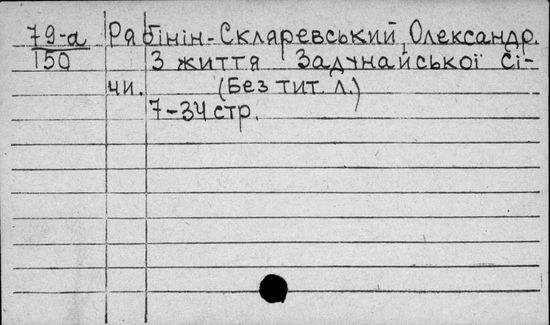 79-а Рябінін-Скляревський, Олександр.
150 З життя Задунайської Сі-
чи. (Без тит. л.)
7-34 стр.